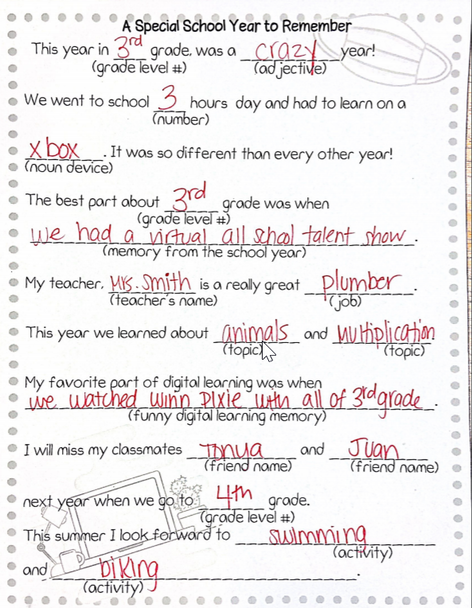 A Special School Year to Remember
This year in 3rd grade, was a crazy year!
(grade level #) (adjective)
We went to school 3 hours day and had to learn on a
(number)
xbox. It was so different than every other year!
(noun device)
The best part about 3rd grade was when
(grade level #)
we had a virtual all school talent show.
(memory from the school year)
My teacher, Mrs. Smith is a really great plumber.
(teacher's name) (job)
This year we learned about animals and Multiplication
(topic) (topic)
My favorite part of digital learning was when
we watched Winn Dixie with all of 3rd grade.
(funny digital learning memory)
I will miss my classmates Tonya and Juan
(friend name) (friend name)
next year when we go to 4th grade.
(grade level #)
This summer I look forward to swimming
(activity)
and biking.
(activity)